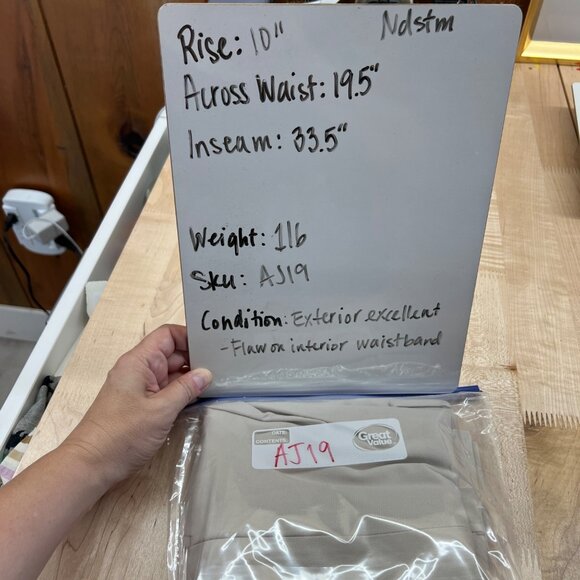 Ndstm
Rise: 10"
Across Waist: 19.5"
Inseam: 33.5"
Weight: 1lb
Sku: AJ19
Condition: Exterior excellent
- Flaw on interior waistband
DATE:
CONTENTS:
Great
Value
AJ19